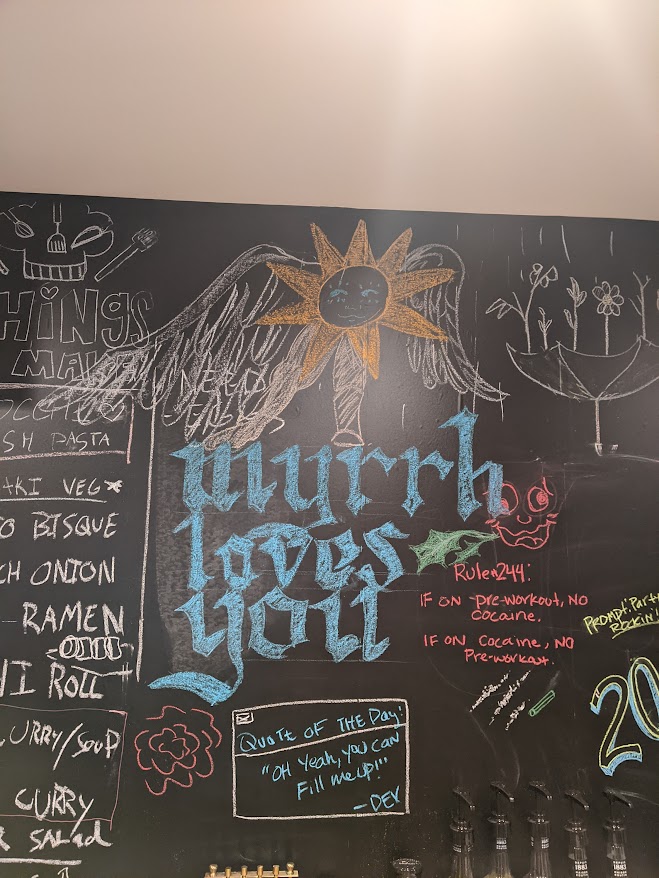 HiNgS
MAKE
NEED
SH PASTA
AKI VEG
O BISQUE
CH ONION
RAMEN
I ROLL
CURRY/SOUP
CURRY
SALAd
myrrh
loves
you
Rule #244:
IF ON Pre-workout, NO
cocaine.
IF ON Cocaine, NO
Pre-workout.
PROMPT: Part
Rockin'
20
QuoTe OF THE Day:
"OH Yeah, you can
Fill me up!"
-DEV
1883
1883
1883
1883